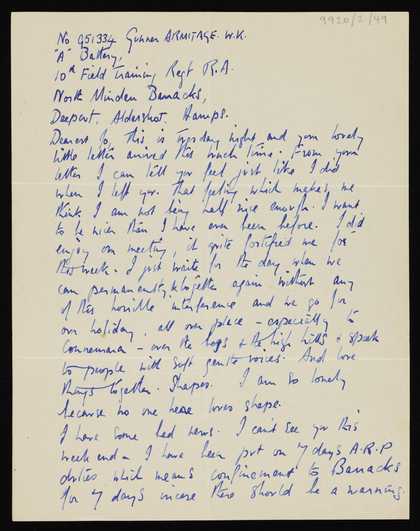 9920/2/49
No 951334 Gunner ARMITAGE. W.K.
"A" Battery,
10th Field Training Regt R.A.
North Minden Barracks,
Deepcut. Aldershot. Hamps.
Dearest Jo, this is tuesday night and your lovely
little letter arrived this lunch time. From your
letter I can tell you feel just like I did
when I left you. that feeling which makes me
think I am not being half nice enough. I want
to be nicer than I have ever been before. I did
enjoy our meeting, it quite fortified me for
this week. I just wait for the day when we
can permanently be together again without any
of this horrible interference and we go for
our holiday, all over place - especially to
Connemara - over the bogs & the high hills & speak
to people with soft gentle voices. And love
things together. Shapes. I am so lonely
because no one here loves shape.
I have some bad news. I can't see you this
week end - I have been put on 7 days A.R.P
duties which means confinement to Barracks
for 7 days incase there should be a warning